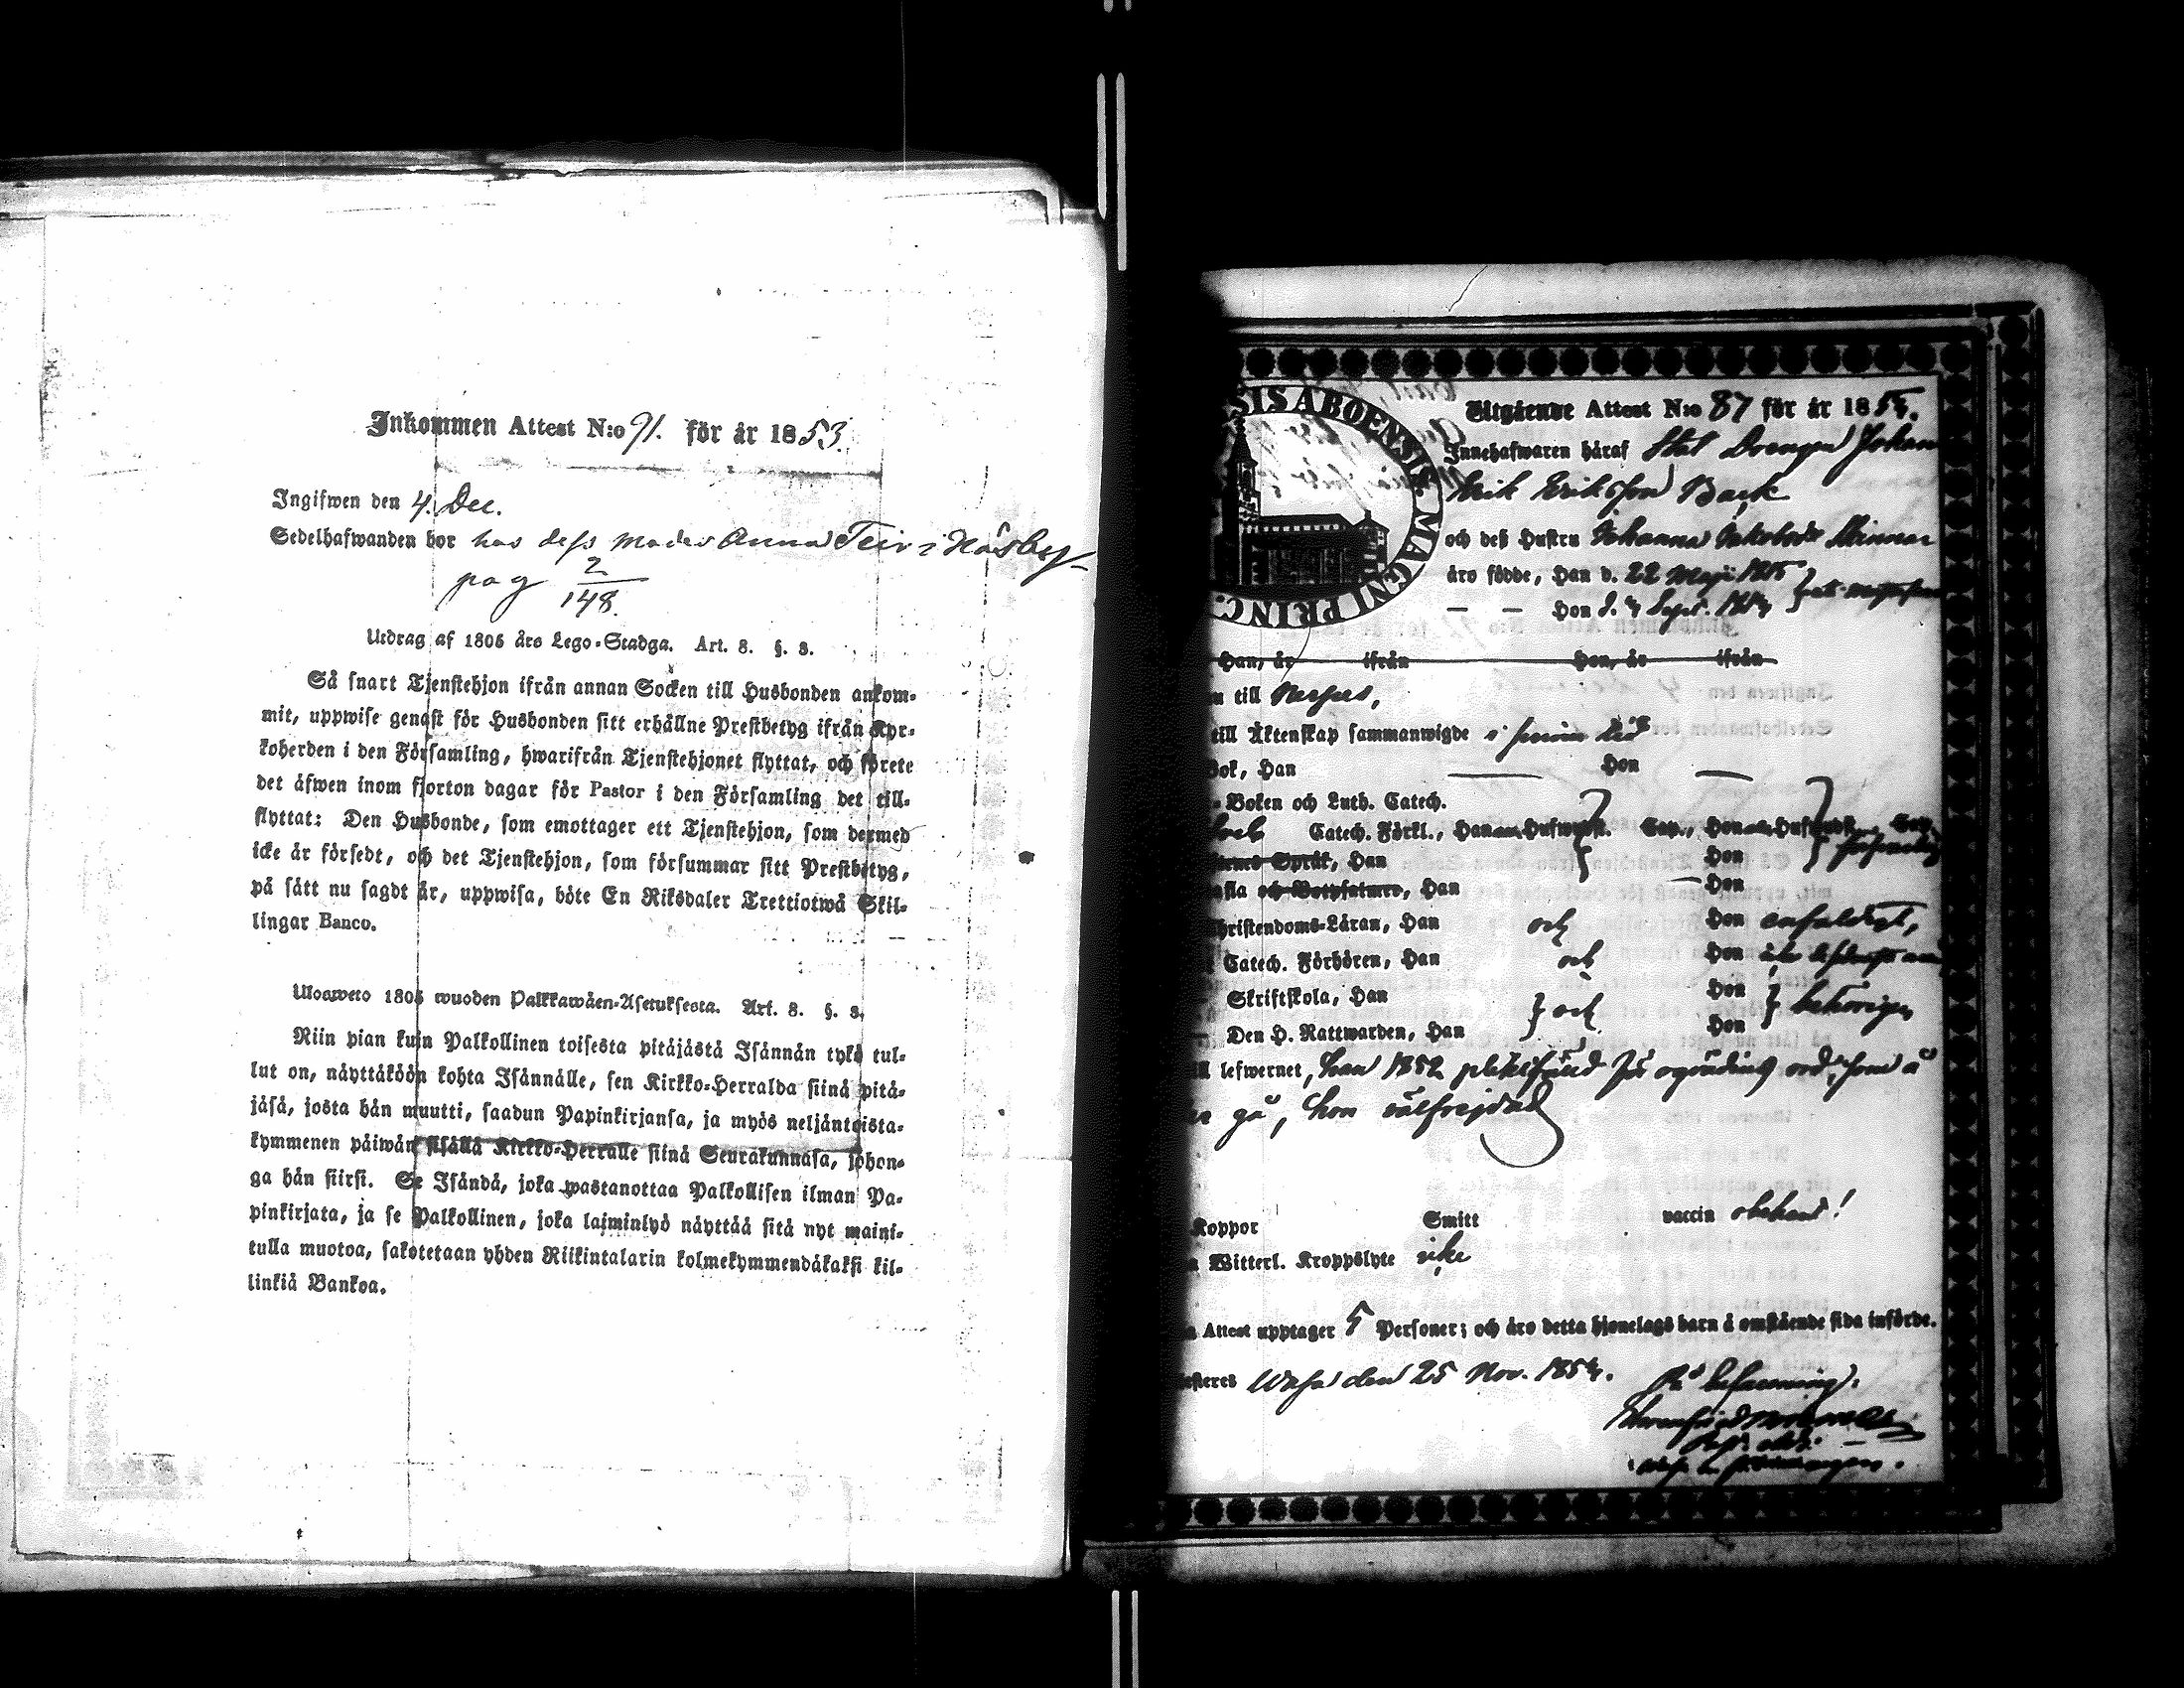 Inkommen Attest N:o 91. för år 1853.
Ingifwen den 4. Dec.
Sedelhafwanden bor hos dess moder Anna Teir i Näsby
pag 2/148.
Utdrag af 1805 års Lego-Stadga. Art. 8. §. 3.
Så snart Tjenstehjon ifrån annan Socken till Husbonden ankom-
mit, uppwise genast för Husbonden sitt erhållne Prestbetyg ifrån Kyr-
koherden i den Församling, hwarifrån Tjenstehjonet flyttat, och förete
det äfwen inom fjorton dagar för Pastor i den Församling det till-
flyttat: Den Husbonde, som emottager ett Tjenstehjon, som dermed
icke är försedt, och det Tjenstehjon, som försummar sitt Prestbetyg,
på sätt nu sagdt är, uppwisa, böte En Riksdaler Trettiotwå Skil-
lingar Banco.
Ulosweto 1805 wuoden Palkkawäen-Asetuksesta. Art. 8. §. 3.
Niin pian kuin Palkollinen toisesta pitäjästä Isännän tykö tul-
lut on, näyttäköön kohta Isännälle, sen Kirkko-Herralda siinä pitä-
jäsä, josta hän muutti, saadun Papinkirjansa, ja myös neljäntoista-
kymmenen päiwän sisällä Kirkko-Herralle siinä Seurakunnasa, johon-
ga hän siirsi. Se Isändä, joka wastanottaa Palkollisen ilman Pa-
pinkirjata, ja se Palkollinen, joka laiminlyö näyttää sitä nyt maini-
tulla muotoa, sakotetaan yhden Riikintalarin kolmekymmendäkaksi kil-
linkiä Bankoa.
SIS ABOENSIS. MAGNI PRINC.
Utgående Attest N:o 87 för år 185
Innehafwaren häraf Stat Drengen Johan
Erik Eriksson Back
och deß Hustru Johanna Jakobsdr
äro födde, Han d. 22 Maji 1815
Hon d. 4 Sept.
Han, år ifrån Hon, år ifrån
till Nerpes,
till Äktenskap sammanwigde
Bok, Han Hon
Boken och Luth. Catech.
Catech. Förkl., Han Hon
Språk, Han Hon
och Botpsalmer, Han Hon
Christendoms-Läran, Han och Hon enfaldigt,
Catech. Förhören, Han och Hon
Skriftskola, Han och Hon behörigen
Den H. Nattwarden, Han Hon
lefwernet, han 1852 pliktfäld för ogrundins ord, som å
gå, hon välfrejdad
Koppor Smitt vaccin obekant!
Witterl. Kroppslyte icke
Attest upptager 5 Personer; och äro detta hjonelags barn å omstående sida införde.
Wasa den 25 Nov. 1854.
På befallning: